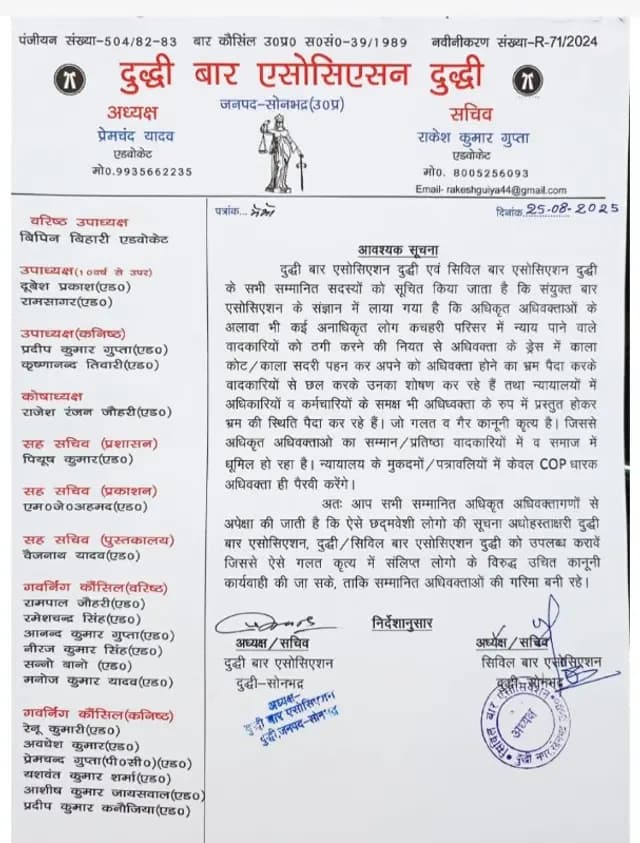 पंजीयन संख्या-504/82-83 बार कौसिंल उ0प्र0 स0सं0-39/1989 नवीनीकरण संख्या-R-71/2024
दुद्धी बार एसोसिएसन दुद्धी
जनपद-सोनभद्र(उ0प्र)
अध्यक्ष
प्रेमचंद यादव
एडवोकेट
मो0.9935662235
सचिव
राकेश कुमार गुप्ता
एडवोकेट
मो0. 8005256093
Email- rakeshguiya44@gmail.com
वरिष्ठ उपाध्यक्ष
बिपिन बिहारी एडवोकेट
उपाध्यक्ष(10वर्ष से उपर)
दूबेश प्रकाश(एड0)
रामसागर(एड0)
उपाध्यक्ष(कनिष्ठ)
प्रदीप कुमार गुप्ता(एड0)
कृष्णानन्द तिवारी(एड0)
कोषाध्यक्ष
राजेश रंजन जौहरी(एड0)
सह सचिव (प्रशासन)
पियूष कुमार(एड0)
सह सचिव (प्रकाशन)
एम0जे0अहमद(एड0)
सह सचिव (पुस्तकालय)
वैजनाथ यादव(एड0)
गवर्निग कौंसिल(वरिष्ठ)
रामपाल जौहरी(एड0)
रमेशचन्द्र सिंह(एड0)
आनन्द कुमार गुप्ता(एड0)
नीरज कुमार सिंह(एड0)
सन्नो बानो (एड0)
मनोज कुमार यादव(एड0)
गवर्निग कौंसिल(कनिष्ठ)
रेनू कुमारी(एड0)
अवधेश कुमार(एड0)
प्रेमचन्द गुप्ता(पी0सी0)(एड0)
यशवंत कुमार शर्मा(एड0)
आशीष कुमार जायसवाल(एड0)
प्रदीप कुमार कनौजिया(एड0)
पत्रांक...
दिनांक.25-08-2025
आवश्यक सूचना
दुद्धी बार एसोसिएशन दुद्धी एवं सिविल बार एसोसिएशन दुद्धी
के सभी सम्मानित सदस्यों को सूचित किया जाता है कि संयुक्त बार
एसोसिएशन के संज्ञान में लाया गया है कि अधिकृत अधिवक्ताओं के
अलावा भी कई अनाधिकृत लोग कचहरी परिसर में न्याय पाने वाले
वादकारियों को ठगी करने की नियत से अधिवक्ता के ड्रेस में काला
कोट/काला सदरी पहन कर अपने को अधिवक्ता होने का भ्रम पैदा करके
वादकारियों से छल करके उनका शोषण कर रहे हैं तथा न्यायालयों में
अधिकारियों व कर्मचारियों के समक्ष भी अधिध्वक्ता के रुप में प्रस्तुत होकर
भ्रम की स्थिति पैदा कर रहे हैं। जो गलत व गैर कानूनी कृत्य है। जिससे
अधिकृत अधिवक्ताओ का सम्मान/प्रतिष्ठा वादकारियों में व समाज में
धूमिल हो रहा है। न्यायालय के मुकदमों/पत्रावलियों में केवल COP धारक
अधिवक्ता ही पैरवी करेंगे।
अतः आप सभी सम्मानित अधिकृत अधिवक्तागणों से
अपेक्षा की जाती है कि ऐसे छद्मवेशी लोगो की सूचना अधोहस्ताक्षरी दुद्धी
बार एसोसिएशन, दुद्धी/सिविल बार एसोसिएशन दुद्धी को उपलब्ध करावें
जिससे ऐसे गलत कृत्य में संलिप्त लोगो के विरुद्ध उचित कानूनी
कार्यवाही की जा सके, ताकि सम्मानित अधिवक्ताओं की गरिमा बनी रहे।
निर्देशानुसार
अध्यक्ष/सचिव
दुद्धी बार एसोसिएशन
दुद्धी-सोनभद्र
अध्यक्ष-
दुद्धी बार एसोसिएशन
दुद्धी,जनपद-सोनभद्र
अध्यक्ष/सचिव
सिविल बार एसोसिएशन
दुद्धी-सोनभद्र
सिविल बार एसोसिएशन
अध्यक्ष